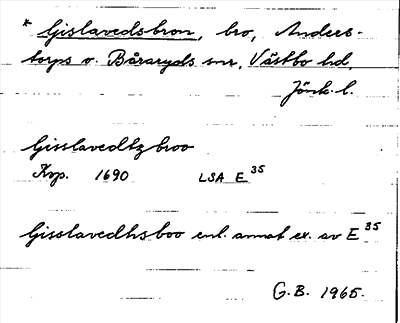 * Gislavedsbron, bro, Anders-
torps o. Båraryds snr, Västbo hd,
Jönk. l.
Gisslavedtz broo
Krp. 1690 LSA E 35
Gisslavedhsboo enl. annat ex. av E 35
G.B. 1965.